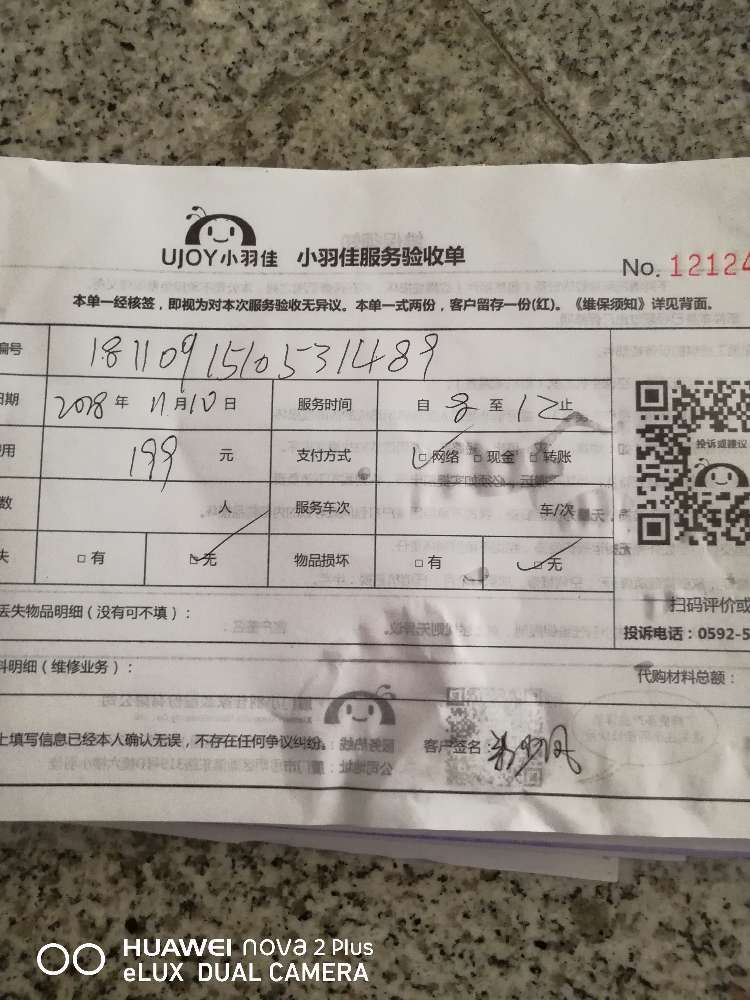 UJOY小羽佳 小羽佳服务验收单
No. 12124
本单一经核签，即视为对本次服务验收无异议。本单一式两份，客户留存一份(红)。《维保须知》详见背面。
编号 1811091510531489
日期 2018 年 11 月 10 日 服务时间 自 8 至 12 止
费用 199 元 支付方式 □网络 □现金 □转账
投诉或建议
数 人 服务车次 车/次
失 □有 □无 物品损坏 □有 □无
扫码评价或
丢失物品明细（没有可不填）：
投诉电话：0592-5
料明细（维修业务）：
代购材料总额：
上填写信息已经本人确认无误，不存在任何争议纠纷。 客户签名：
HUAWEI nova 2 Plus
eLUX DUAL CAMERA